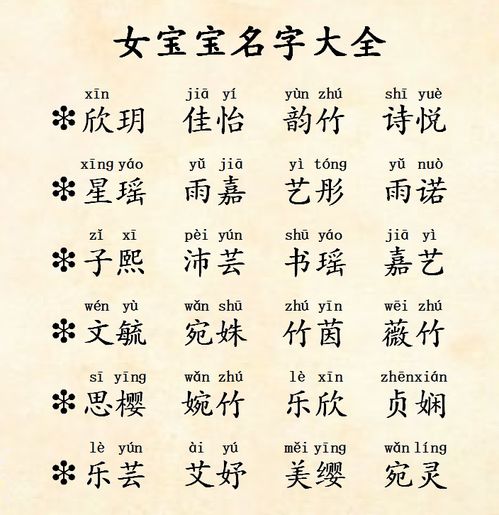 女宝宝名字大全
xīn jiā yí yùn zhú shī yuè
❇欣玥 佳怡 韵竹 诗悦
xīng yáo yǔ jiā yì tóng yǔ nuò
❇星瑶 雨嘉 艺彤 雨诺
zǐ xī pèi yún shū yáo jiā yì
❇子熙 沛芸 书瑶 嘉艺
wén yù wǎn shū zhú yīn wēi zhú
❇文毓 宛姝 竹茵 薇竹
sī yīng wǎn zhú lè xīn zhēn xián
❇思樱 婉竹 乐欣 贞娴
lè yún ài yú měi yīng wǎn líng
❇乐芸 艾妤 美缨 宛灵